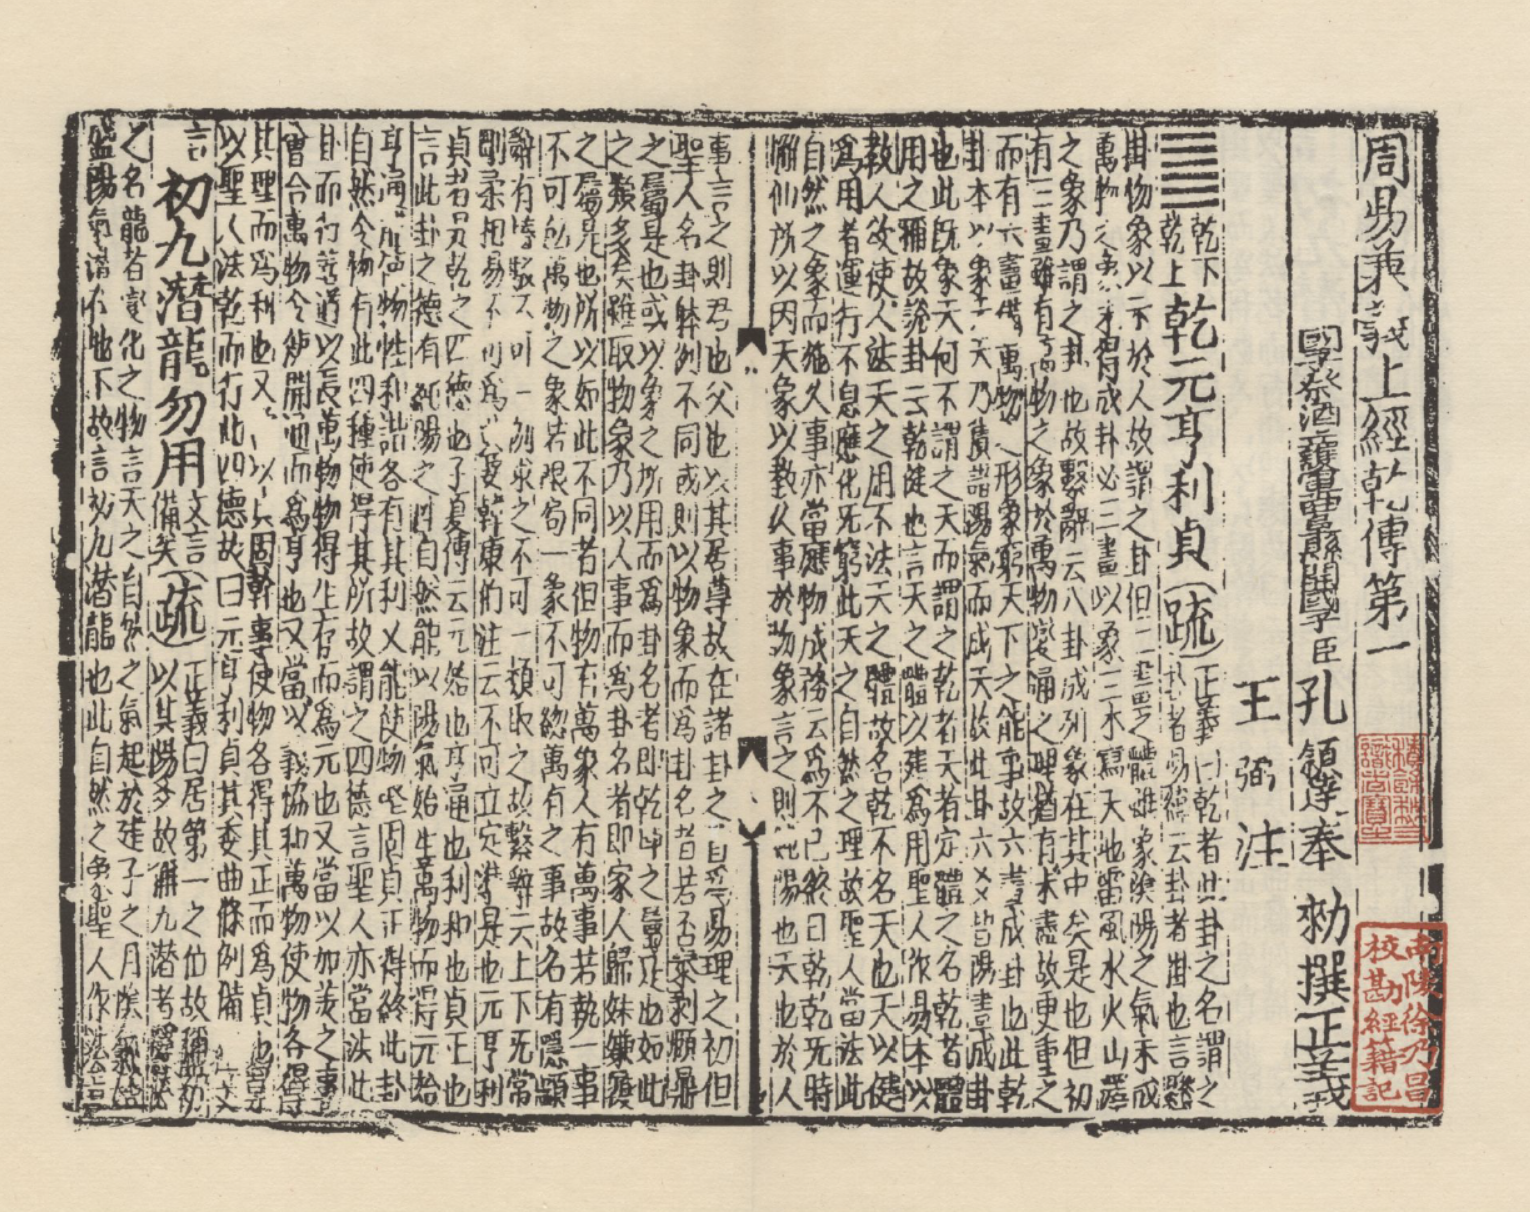 周易兼義上經乾傳第一
國子祭酒上護軍曲阜縣開國子臣孔穎達奉 勑撰正義
王弼注
乾下乾上乾元亨利貞疏正義曰乾者此卦之名謂之
卦者易緯云卦者掛也言懸
掛物象以示於人故謂之卦但二畫之體雖象陰陽之氣未成
萬物之象未得成卦必三畫以象三才寫天地雷風水火山澤
之象乃謂之卦也故繫辭云八卦成列象在其中矣是也但初
有三畫雖有萬物之象於萬物變通之理猶有未盡故更重之
而有六畫備萬物之形象窮天下之能事故六畫成卦也此乾
卦本以象天天乃積諸陽氣而成天故此卦六爻皆陽畫成卦
也此既象天何不謂之天而謂之乾者天者定體之名乾者體
用之稱故說卦云乾健也言天之體以健為用聖人作易本以
教人欲使人法天之用不法天之體故名乾不名天也天以健
為用者運行不息應化无窮此天之自然之理故聖人當法此
自然之象而施人事亦當應物成務云為不已終日乾乾无時
懈倦所以因天象以教人事於物象言之則純陽也天也於人
事言之則君也父也以其居尊故在諸卦之首為易理之初但
聖人名卦體例不同或則以物象而為卦名者若否泰剝頤鼎
之屬是也或以象之所用而為卦名者即乾坤之屬是也如此
之類多矣雖取物象乃以人事而為卦名者即家人歸妹謙履
之屬是也所以如此不同者但物有萬象人有萬事若執一事
不可包萬物之象若限局一象不可總萬有之事故名有隱顯
辭有踳駮不可一例求之不可一類取之故繫辭云上下无常
剛柔相易不可為典要韓康伯注云不可立定準是也元亨利
貞者是乾之四德也子夏傳云元始也亨通也利和也貞正也
言此卦之德有純陽之性自然能以陽氣始生萬物而得元始
亨通能使物性和諧各有其利又能使物堅固貞正得終此卦
自然令物有此四種使得其所故謂之四德言聖人亦當法此
卦而行善道以長萬物物得生存而為元也又當以嘉美之事
會合萬物令使開通而為亨也又當以義協和萬物使物各得
其理而為利也又當以貞固幹事使物各得其正而為貞也是
以聖人法乾而行此四德故曰元亨利貞其委曲條例備在文
言
初九潛龍勿用文言備矣疏正義曰居第一之位故稱初
以其陽爻故稱九潛者隱伏
之名龍者變化之物言天之自然之氣起於建子之月陰氣始
盛陽氣潛在地下故言初九潛龍也此自然之象聖人作法言
南陵徐乃昌校勘經籍記
積餘秘笈識者寶之